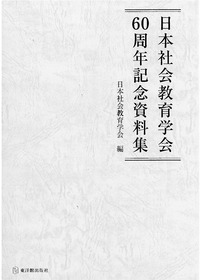 日本社会教育学会
60周年記念資料集
日本社会教育学会 編
東洋館出版社